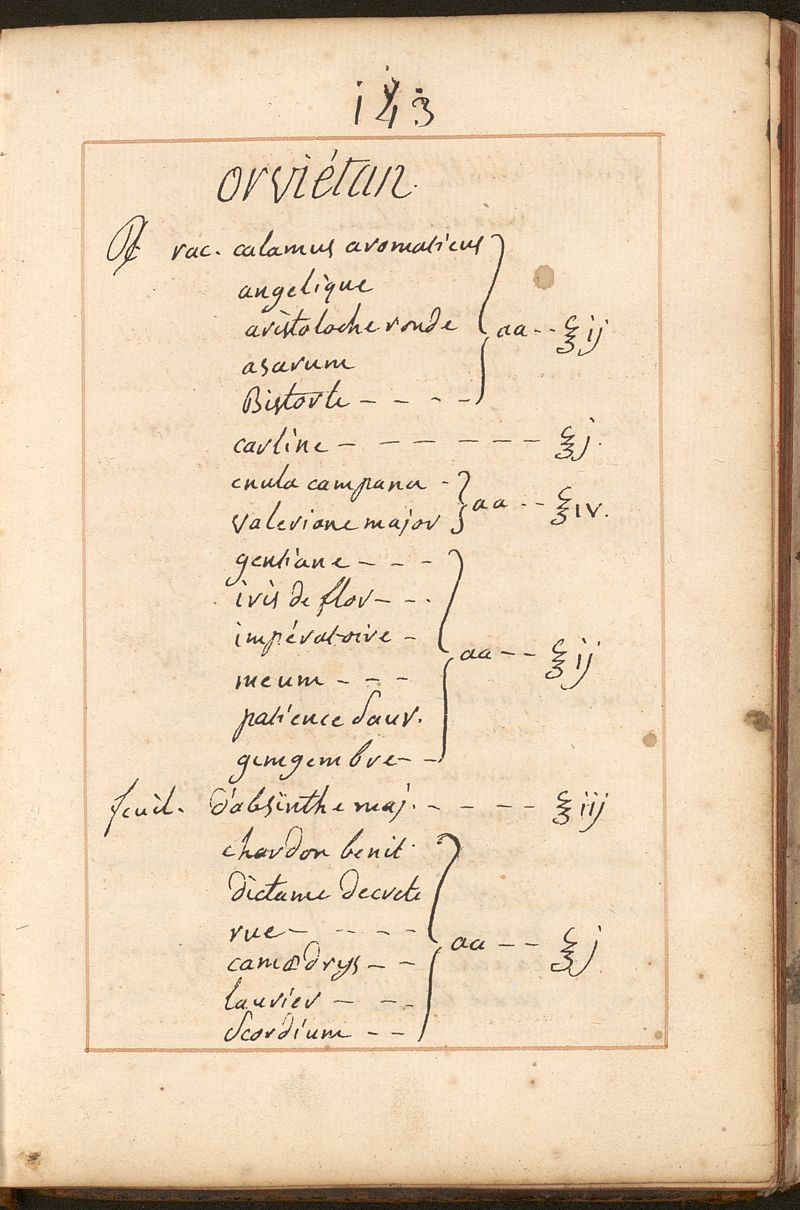 143
orviétan.
℞ rac. calamus aromaticus
angelique
aristoloche ronde aa -- ℥ ij
asarum
Bistorte - - - -
carline - - - - - - ℥ j.
enula campana -
valeriane major aa -- ℥ iv.
gentiane - - -
iris de flor - - .
impératoire -
meum - - - aa -- ℥ ij
patience sauv.
gemgembre - -
feuil. d'absinthe maj. - - - - ℥ iij
chardon benit
dictame decrete
rue - - - - -
camædrys - - aa -- ℥ j
laurier - - -
scordium - -